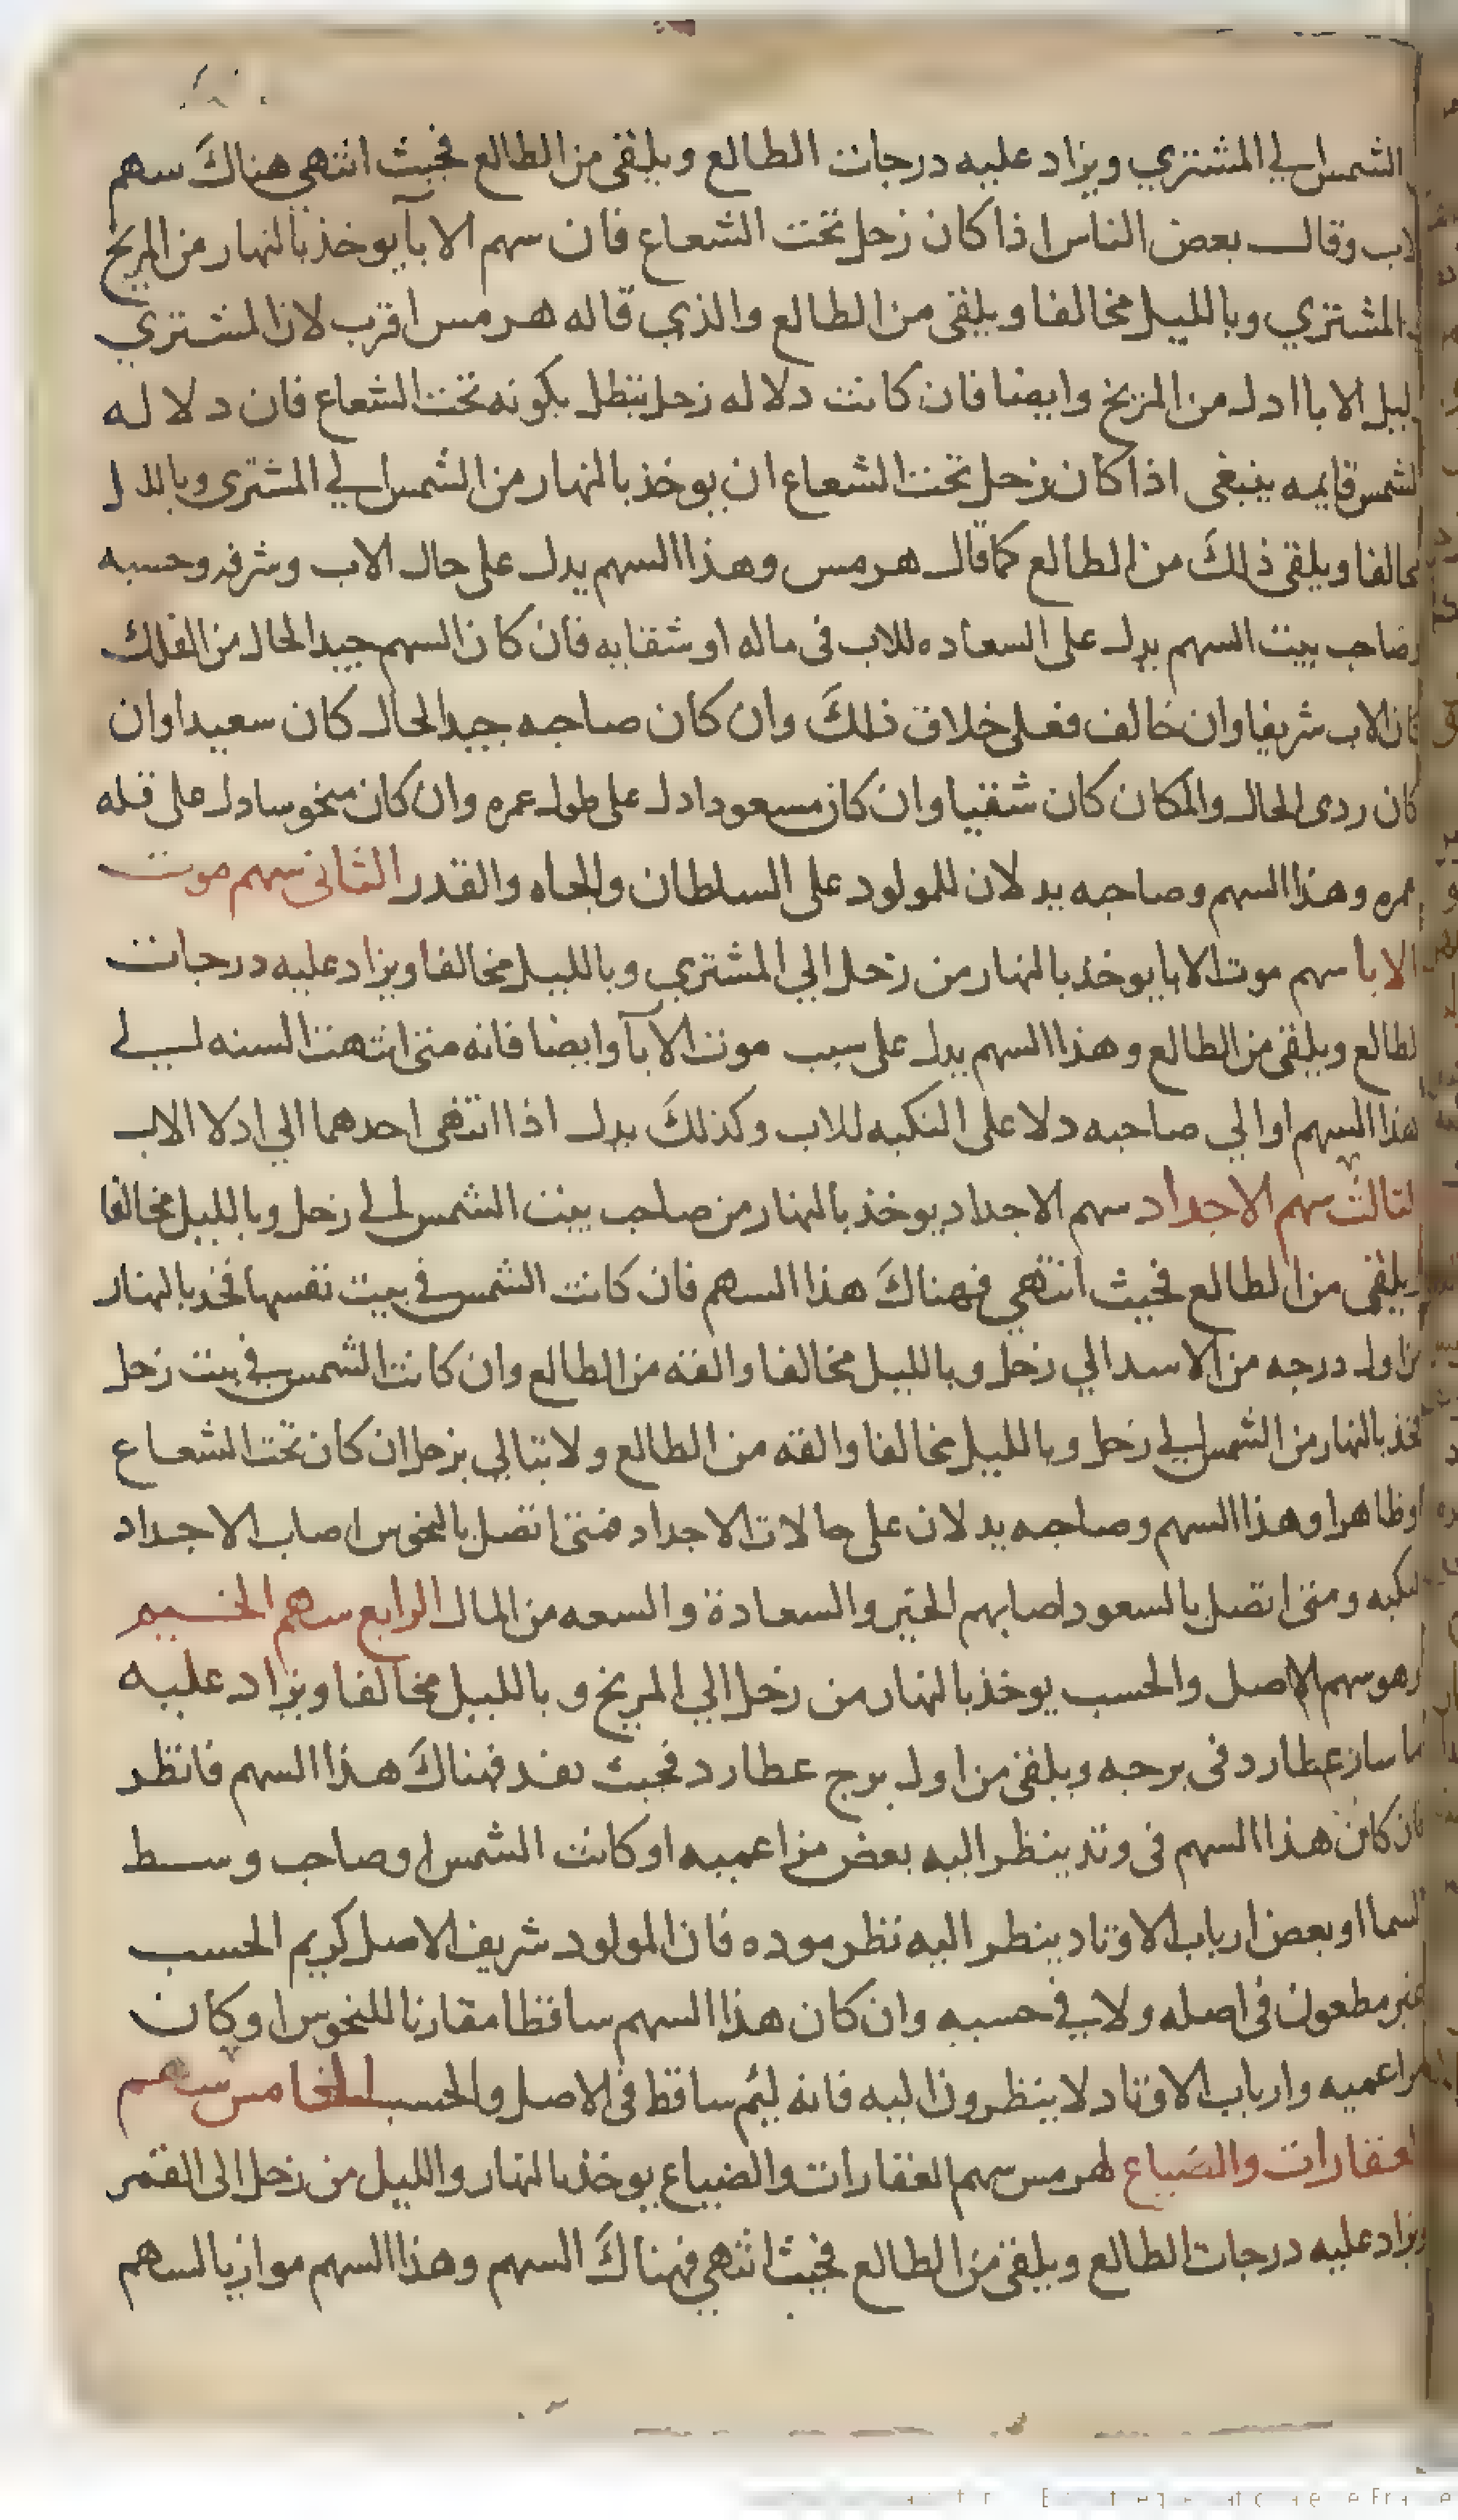 الشمس الي المشتري ويزاد عليه درجات الطالع ويلقى من الطالع فحيث انتهى هناك سهم
لاب وقال بعض الناس اذا كان زحل تحت الشعاع فان سهم الابآ يوخذ بالنهار من المريخ
المشتري وبالليل مخالفا ويلقى من الطالع والذي قاله هرمس اقرب لان المشتري
ليل الابا ادل من المريخ وايضا فان كانت دلاله زحل تبطل بكونه تحت الشعاع فان دلاله
لشمس قايمه ينبغى اذا كان زحل تحت الشعاع ان يوخذ بالنهار من الشمس الي المشترى وبالل
مخالفا ويلقى ذلك من الطالع كما قال هرمس وهذا السهم يدل على حال الاب وشرفه وحسبه
وصاحب بيت السهم يدل على السعاده للاب فى ماله او شقايه فان كان السهم جيد الحال من الفلك
كان الاب شريفا وان خالف فعلى خلاف ذلك وان كان صاحبه جيد الحال كان سعيدا وان
كان ردى الحال والمكان كان شقيا وان كان مسعودا دل على طول عمره وان كان منحوسا دل على قله
عمره وهذا السهم وصاحبه يدلان للمولود على السلطان والجاه والقدر الثانى سهم موت
الابا سهم موت الابا يوخذ بالنهار من زحل الي المشتري وبالليل مخالفا ويزاد عليه درجات
لطالع ويلقى من الطالع وهذا السهم يدل على سبب موت الابآ وايضا فانه متى انتهت السنه الي
هذا السهم او الي صاحبه دلا على النكبه للاب وكذلك يدل اذا انتهى احدهما الي ادلا الاب
لثالث سهم الاجداد سهم الاجداد يوخذ بالنهار من صاحب بيت الشمس الي زحل وبالليل مخالفا
ويلقى من الطالع فحيث انتهى فهناك هذا السهم فان كانت الشمس في بيت نفسها فخذ بالنهار
من اول درجه من الاسد الي زحل وبالليل مخالفا والقه من الطالع وان كانت الشمس في بيت زحل
فخذ بالنهار من الشمس الي زحل وبالليل مخالفا والقه من الطالع ولا تبالي بزحل ان كان تحت الشعاع
او ظاهرا وهذا السهم وصاحبه يدلان على حالات الاجداد فمتى اتصل بالنحوس اصاب الاجداد
لنكبه ومتى اتصل بالسعود اصابهم الخير والسعادة والسعه من المال الرابع سهم الخيم
وهو سهم الاصل والحسب يوخذ بالنهار من زحل الي المريخ وبالليل مخالفا ويزاد عليه
ما سار عطارد فى برجه ويلقى من اول برج عطارد فحيث نفد فهناك هذا السهم فانظر
فان كان هذا السهم فى وتد ينظر اليه بعض مزاعميه او كانت الشمس او صاحب وسط
السما او بعض ارباب الاوتاد ينظر اليه نظر موده فان المولود شريف الاصل كريم الحسب
غير مطعون فى اصله ولا في حسبه وان كان هذا السهم ساقطا مقارنا للنحوس او كان
مزاعميه وارباب الاوتاد لا ينظرون اليه فانه لئم ساقط فى الاصل والحسب الخامس سهم
لعقارات والضياع لهرمس سهم العقارات والضياع يوخذ بالنهار والليل من زحل الى القمر
ويزاد عليه درجات الطالع ويلقى من الطالع فحيث انتهي فهناك السهم وهذا السهم موازيا لسهم